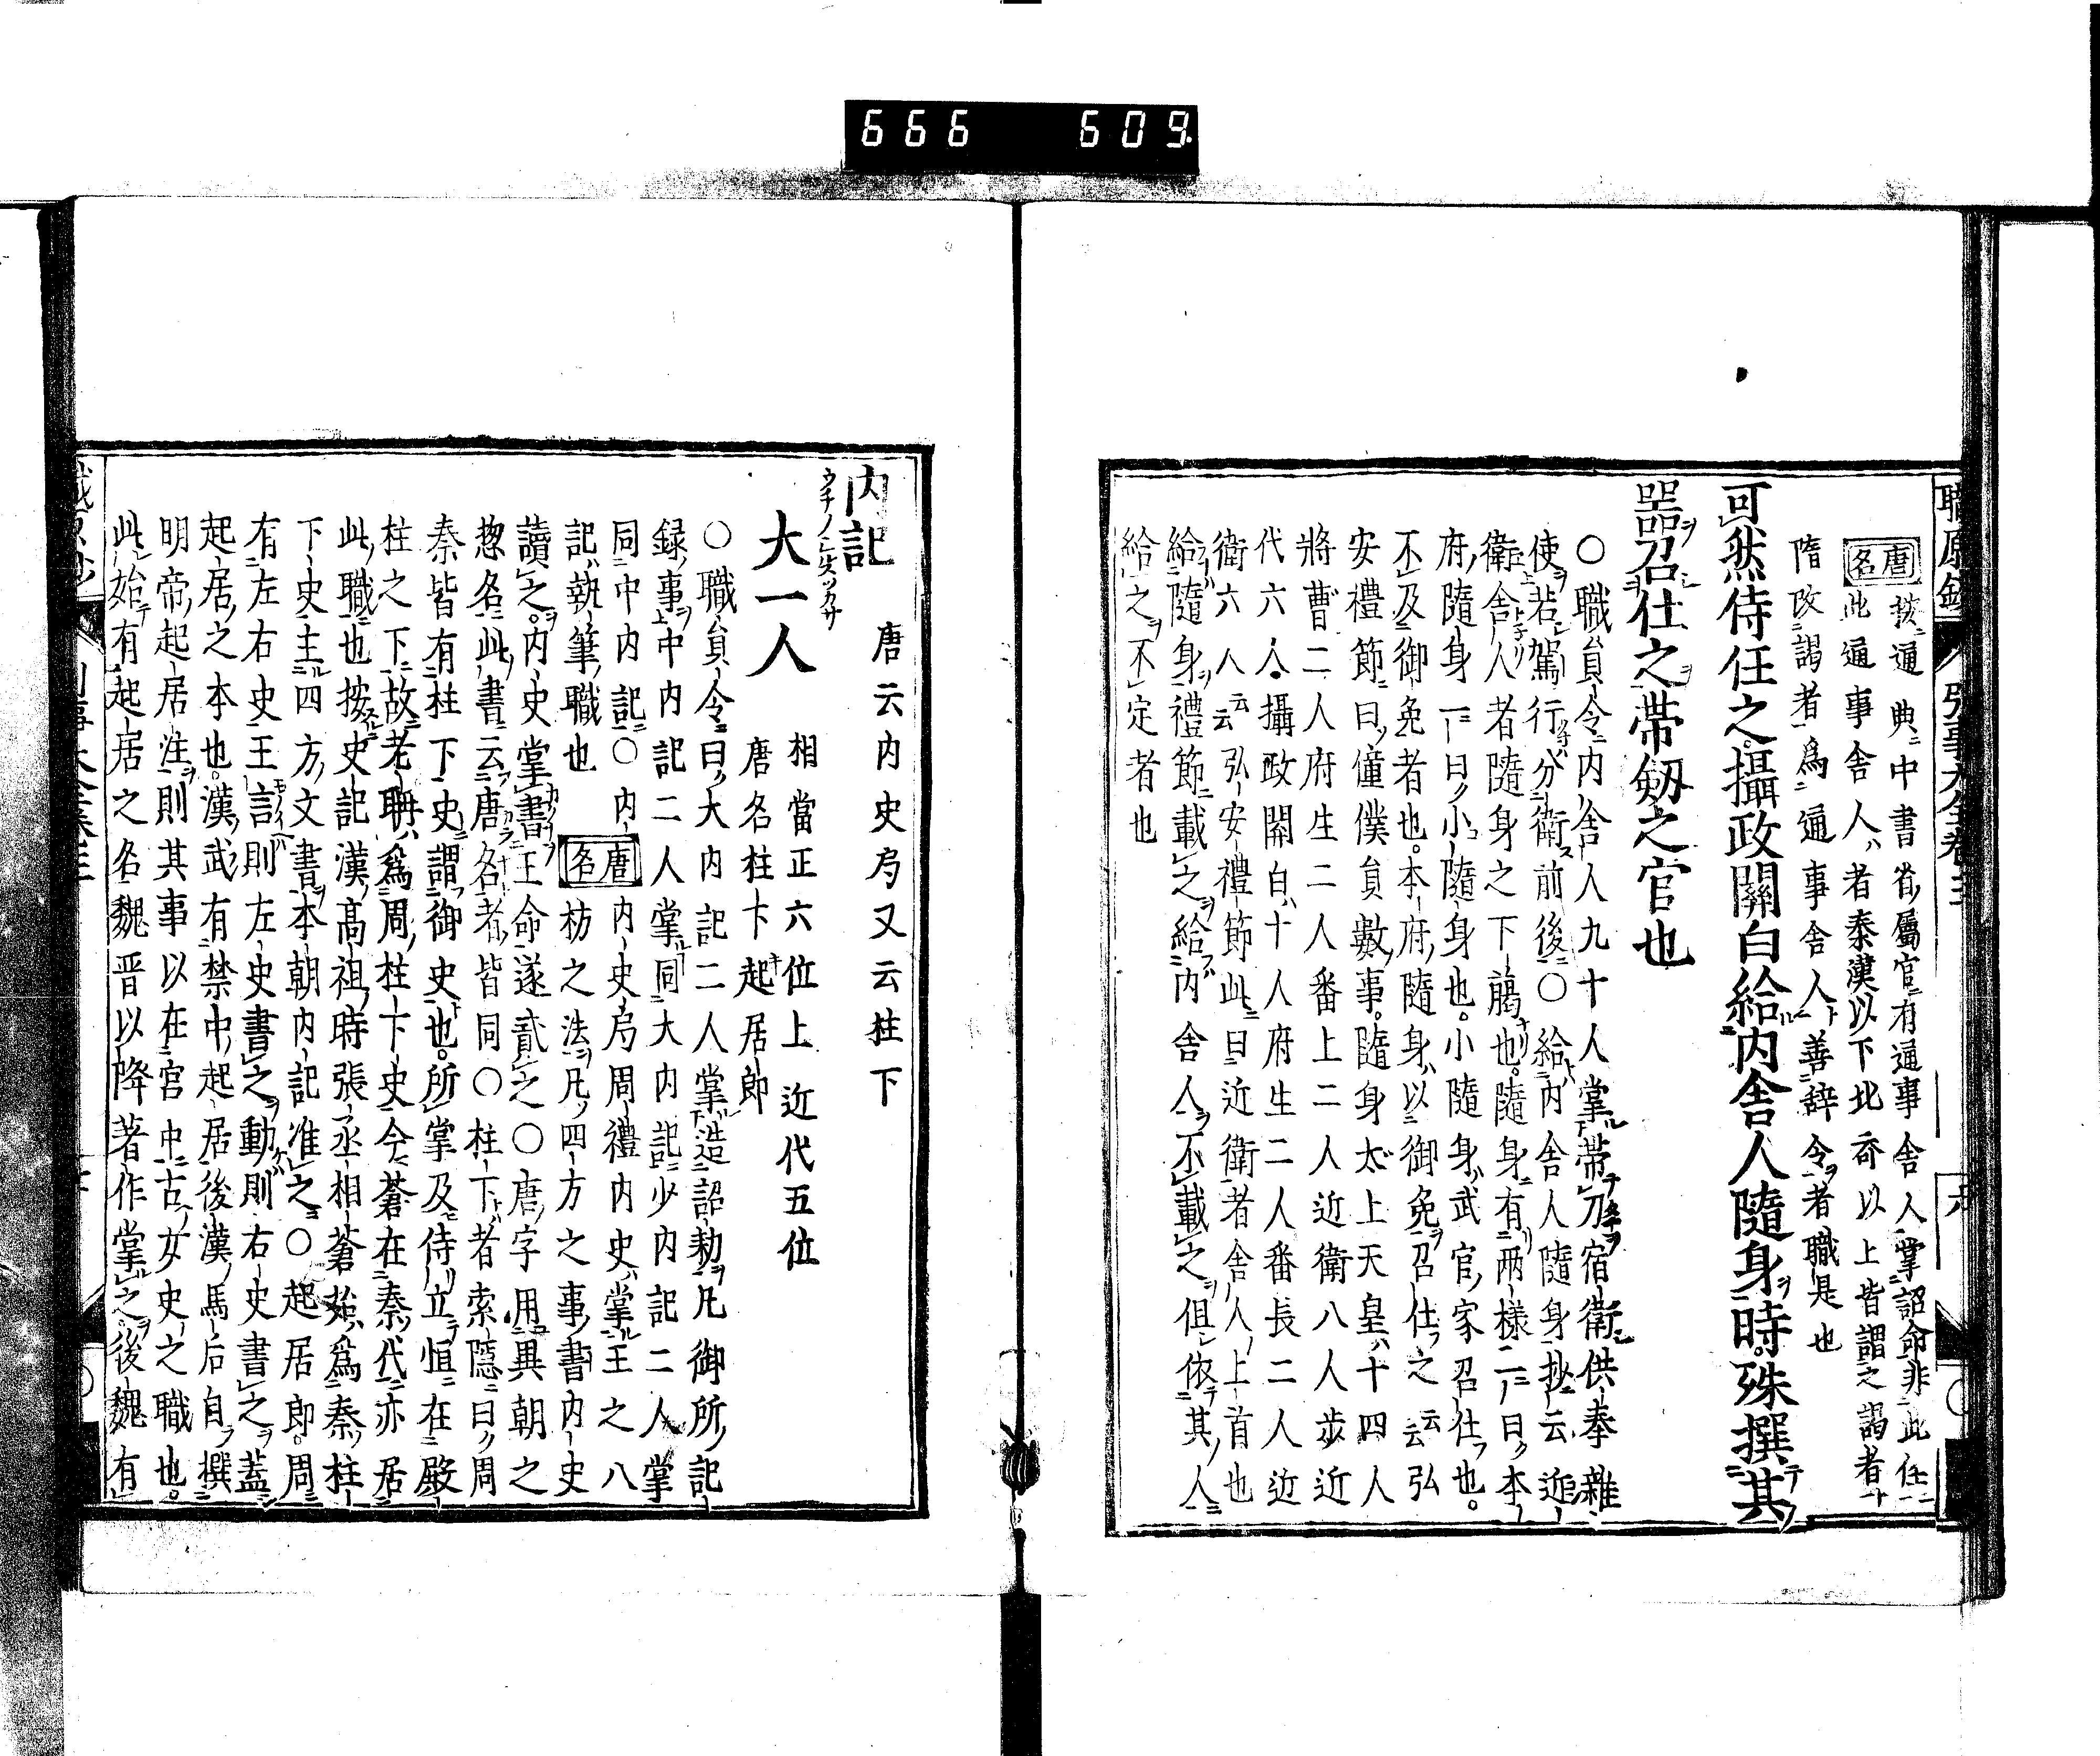 666 609
唐名 按通典中書省屬官有通事舍人掌詔命非此任
此通事舍人者秦漢以下北齊以上皆謂之謁者
隋改謁者爲通事舍人善辭令者職是也
可然侍任之攝政關白給内舍人隨身時殊撰其
器召仕之帶劔之官也
〇職員令内舍人九十人掌帶刀宿衛供奉雜
使若駕行分衛前後〇給内舍人隨身抄云近
衛舍人者隨身之下﨟也隨身有兩樣二曰本
府隨身一曰小隨身也小隨身武官家召仕也
不及御免者也本府隨身以御免召仕之云云弘
安禮節曰僮僕員數事隨身太上天皇十四人
將曹二人府生二人番上二人近衛八人歩近
代六人攝政關白十人府生二人番長二人近
衛六人云云弘安禮節此曰近衛者舍人上首也
給隨身禮節載之給内舍人不載之但依其人
給之不定者也
内記 唐云内史局又云柱下
ウチノシルスツカサ
大一人 相當正六位上近代五位
唐名柱下起居郎
〇職員令曰大内記二人掌造詔勅凡御所記
録事中内記二人掌同大内記少内記二人掌
同中内記〇内
記執筆職也 唐名 内史局周禮内史掌王之八
枋之法凡四方之事書内史
讀之内史掌書王命遂貳之〇唐字用異朝之
惣名此書云唐名者皆同〇柱下者索隱曰周
秦皆有柱下史謂御史也所掌及侍立恒在殿
柱之下故老聃爲周柱下史今蒼在秦代亦居
此職也按史記漢高祖時張丞相蒼始爲秦柱
下史主四方文書本朝内記准之〇起居郎周
有左右史王言則左史書之動則右史書之蓋
起居之本也漢武有禁中起居後漢馬后自撰
明帝起居注則其事以在宮中古女史之職也
此始有起居之名魏晋以降著作掌之後魏有